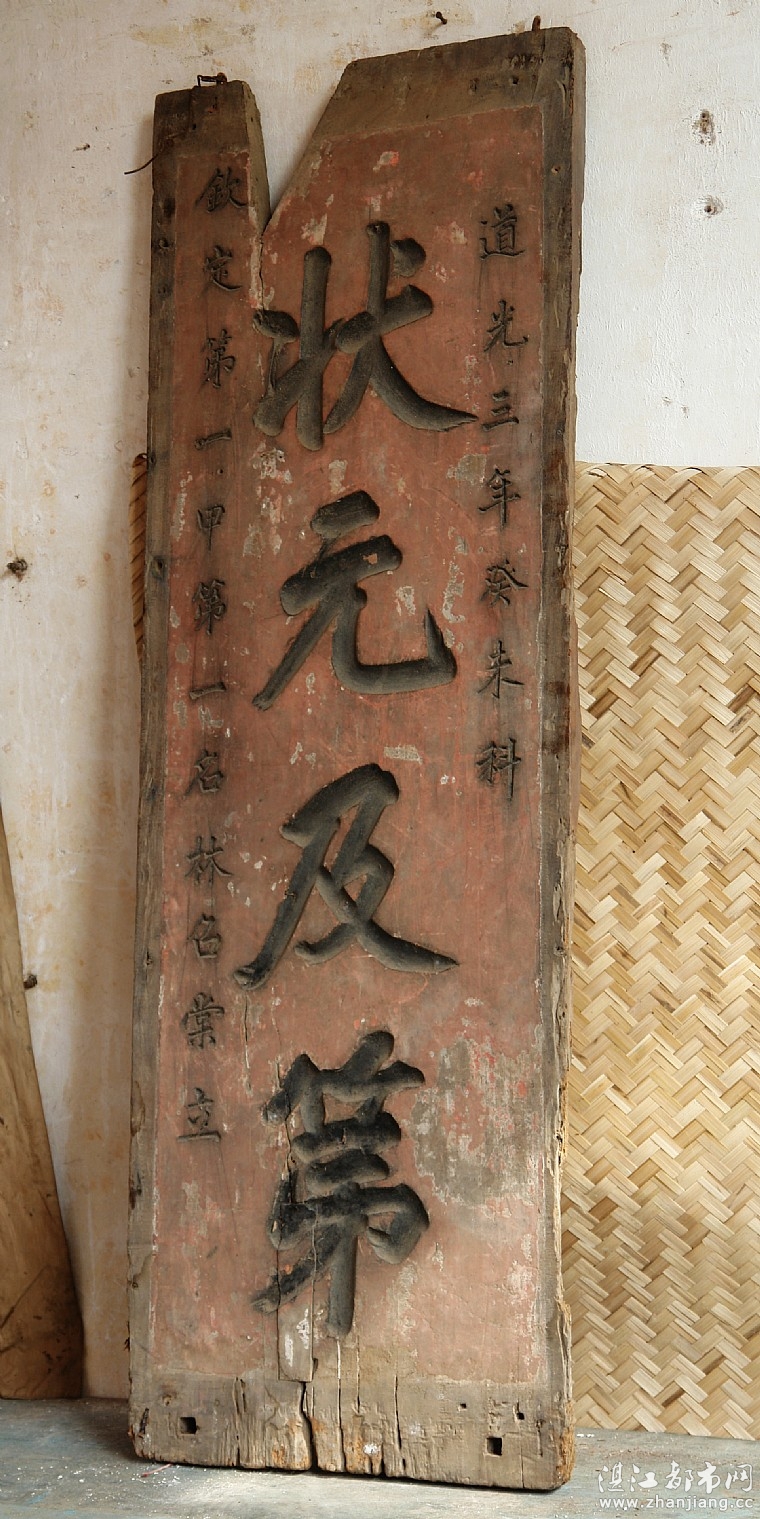 道光三年癸未科
状元及第
欽定第一甲第一名林召棠立
湛江都市网
www.zhanjiang.cc